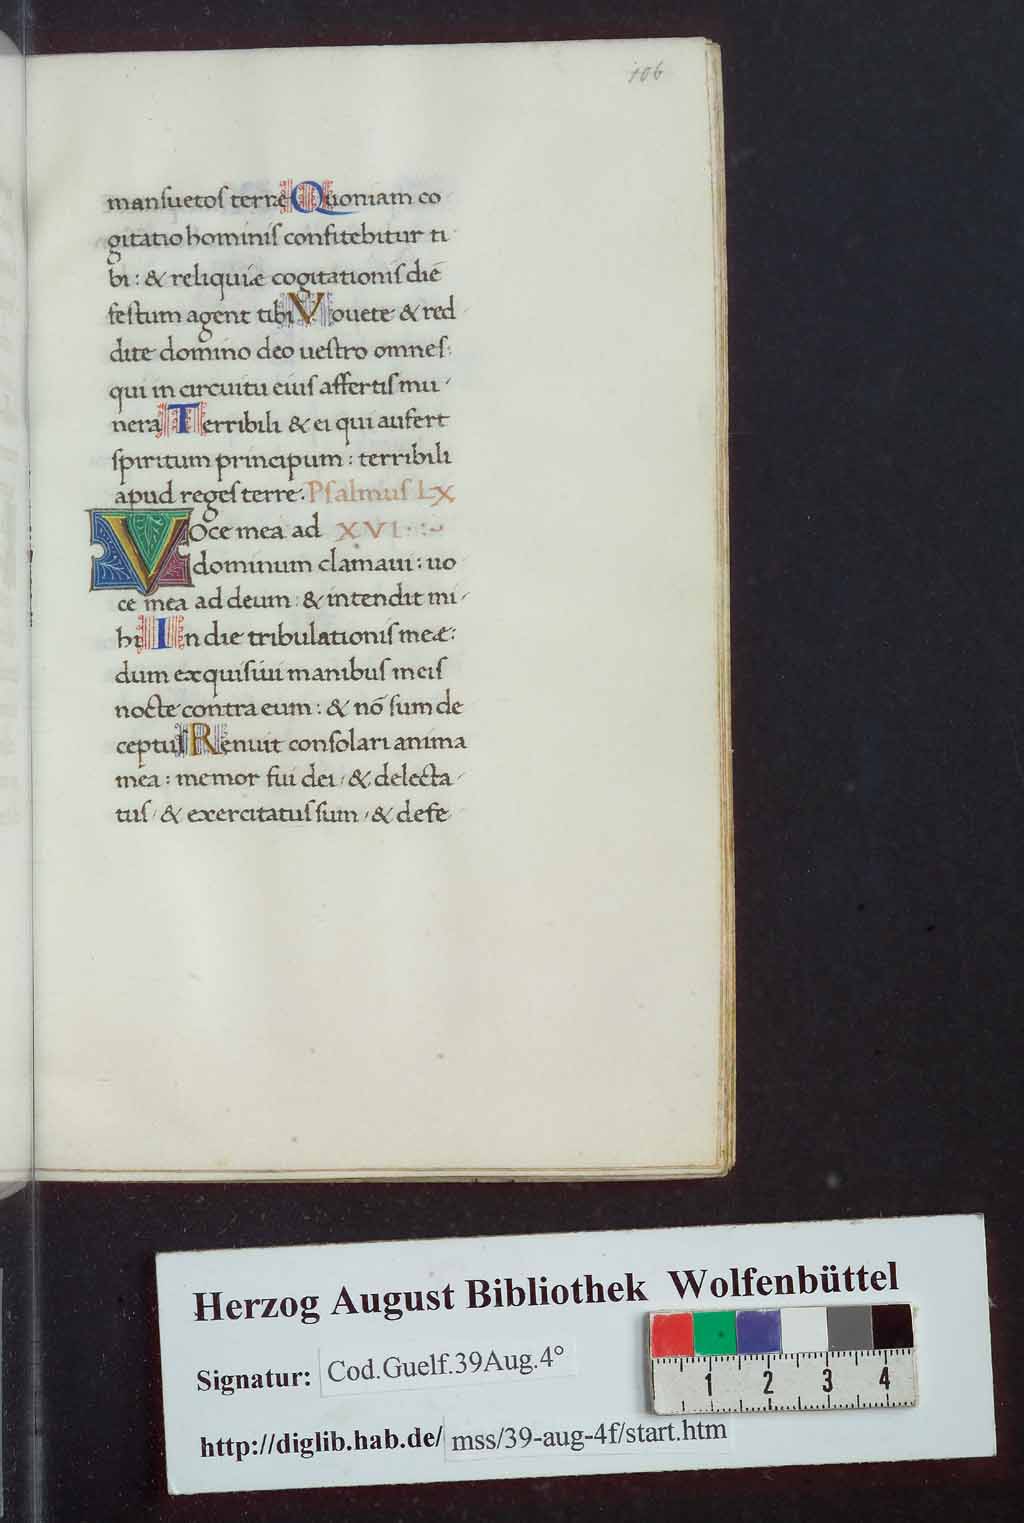 106
manſuetoſ terrę Quoniam co
gitatio hominiſ confitebitur ti
bi: & reliquiæ cogitationiſ diē
feſtum agent tibi Vouete & red
dite domino deo ueſtro omneſ:
qui in circuitu eiuſ affertiſ mu
nera Terribili & ei qui aufert
ſpiritum principum: terribili
apud regeſ terre. Pſalmuſ LX
Voce mea ad XVI
dominum clamaui: uo
ce mea ad deum: & intendit mi
hi In die tribulationiſ meæ:
dum exquiſiui manibuſ meiſ
nocte contra eum: & nō ſum de
ceptuſ Renuit conſolari anima
mea: memor fui dei / & delecta
tuſ / & exercitatuſ ſum / & defe
Herzog August Bibliothek Wolfenbüttel
Signatur: Cod.Guelf.39Aug.4°
1 2 3 4
http://diglib.hab.de/ mss/39-aug-4f/start.htm